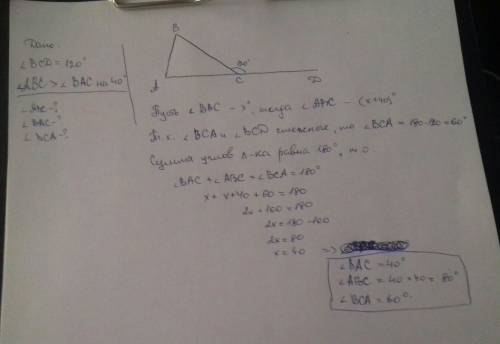 Дано:
∠BCD = 120°
∠ABC > ∠BAC на 40°
∠BAC - ?
∠BCA - ?
B
A
C
D
Пусть ∠BAC - x°, тогда ∠ABC - (x+40)°
Т.к. ∠BCA и ∠BCD смежные, то ∠BCA = 180-120 = 60°
Сумма углов Δ-ка равна 180°, т.о.
∠BAC + ∠ABC + ∠BCA = 180°
x + x+40 + 60 = 180
2x + 100 = 180
2x = 180 - 100
2x = 80
x = 40 =>
∠BAC = 40°
∠ABC = 40 + 40 = 80°
∠BCA = 60°.